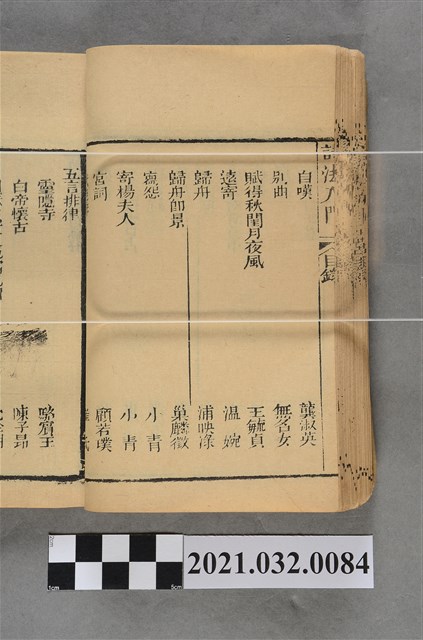 自嘆　龔淑英
別曲　無名女
賦得秋閨月夜風　王毓貞
遠寄　温婉
歸舟　浦映淥
歸舟即景　巢麟徵
寫怨　小青
寄楊夫人　小青
宮詞　顧若璞
五言排律
靈隱寺　駱賓王
白帝懷古　陳子昂
2021.032.0084